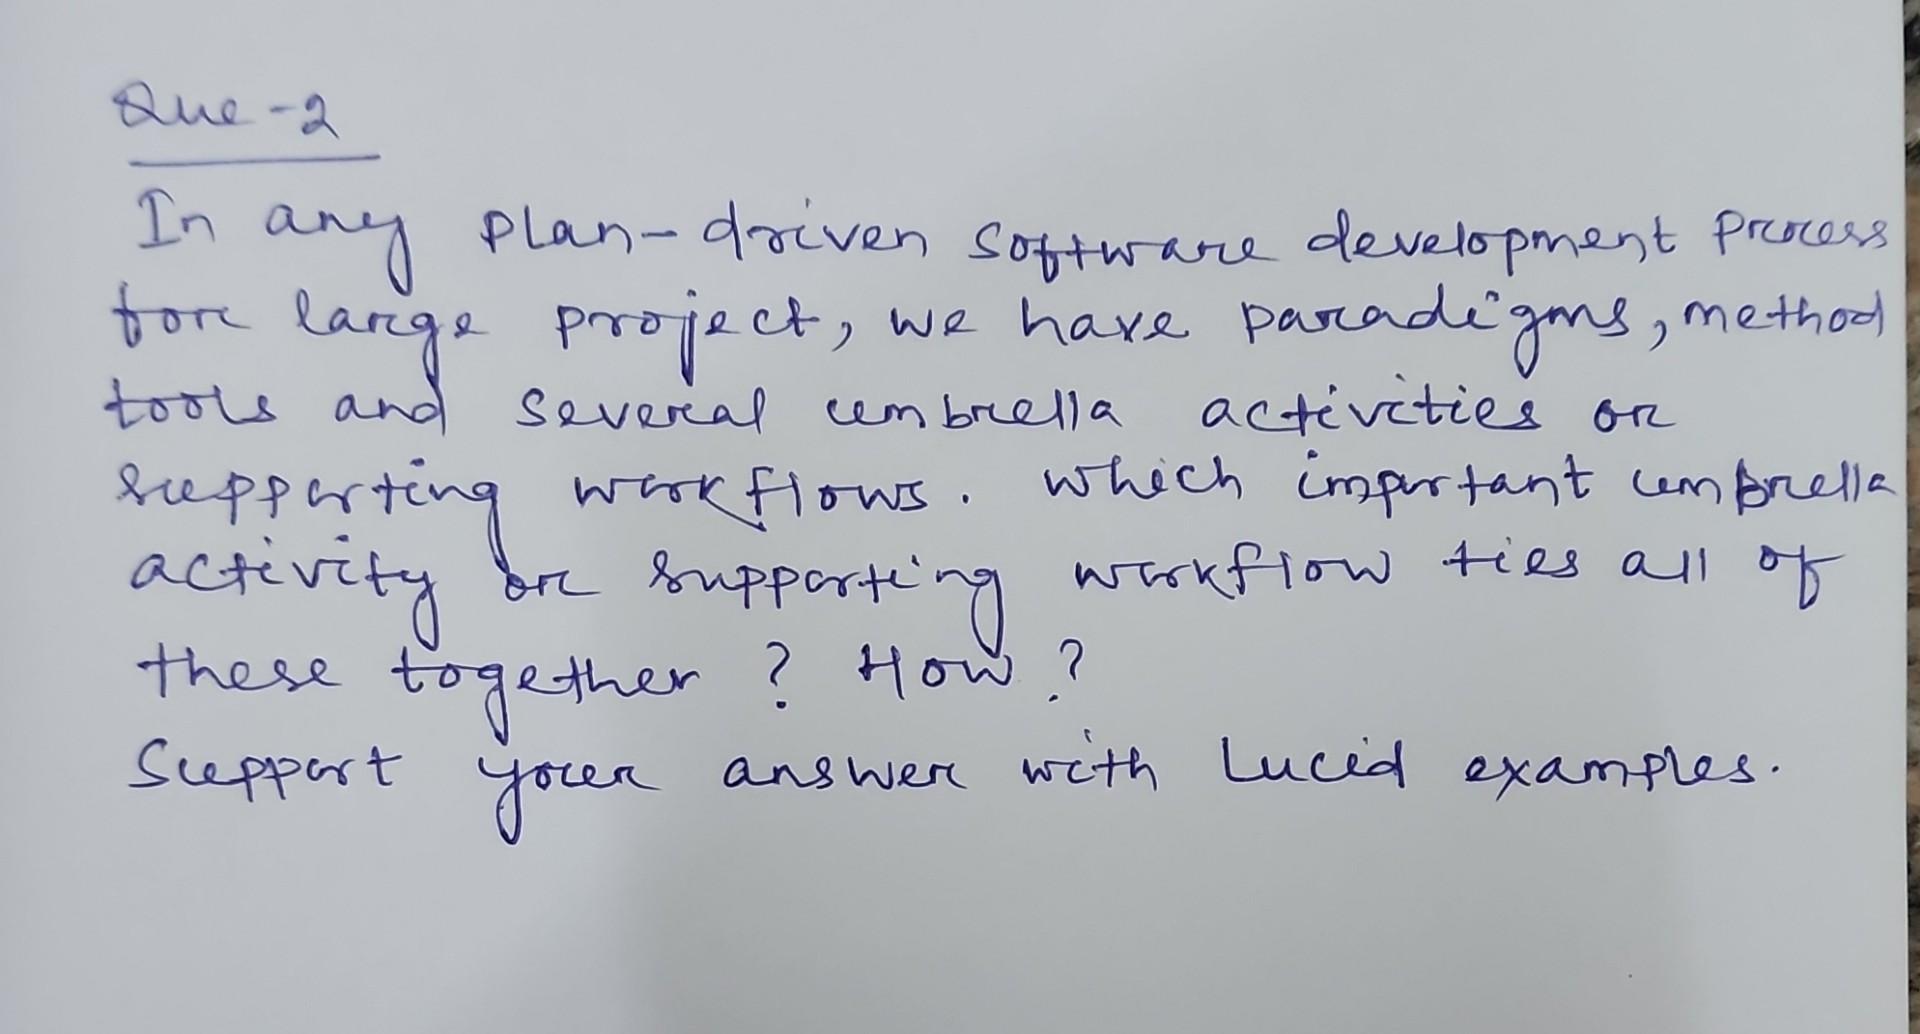 Que-2
In any plan-driven software development process
for large project, we have paradigms, method
tools and several umbrella activities or
supporting workflows. Which important umbrella
activity or supporting workflow ties all of
these together ? How ?
Support your answer with Lucid examples.